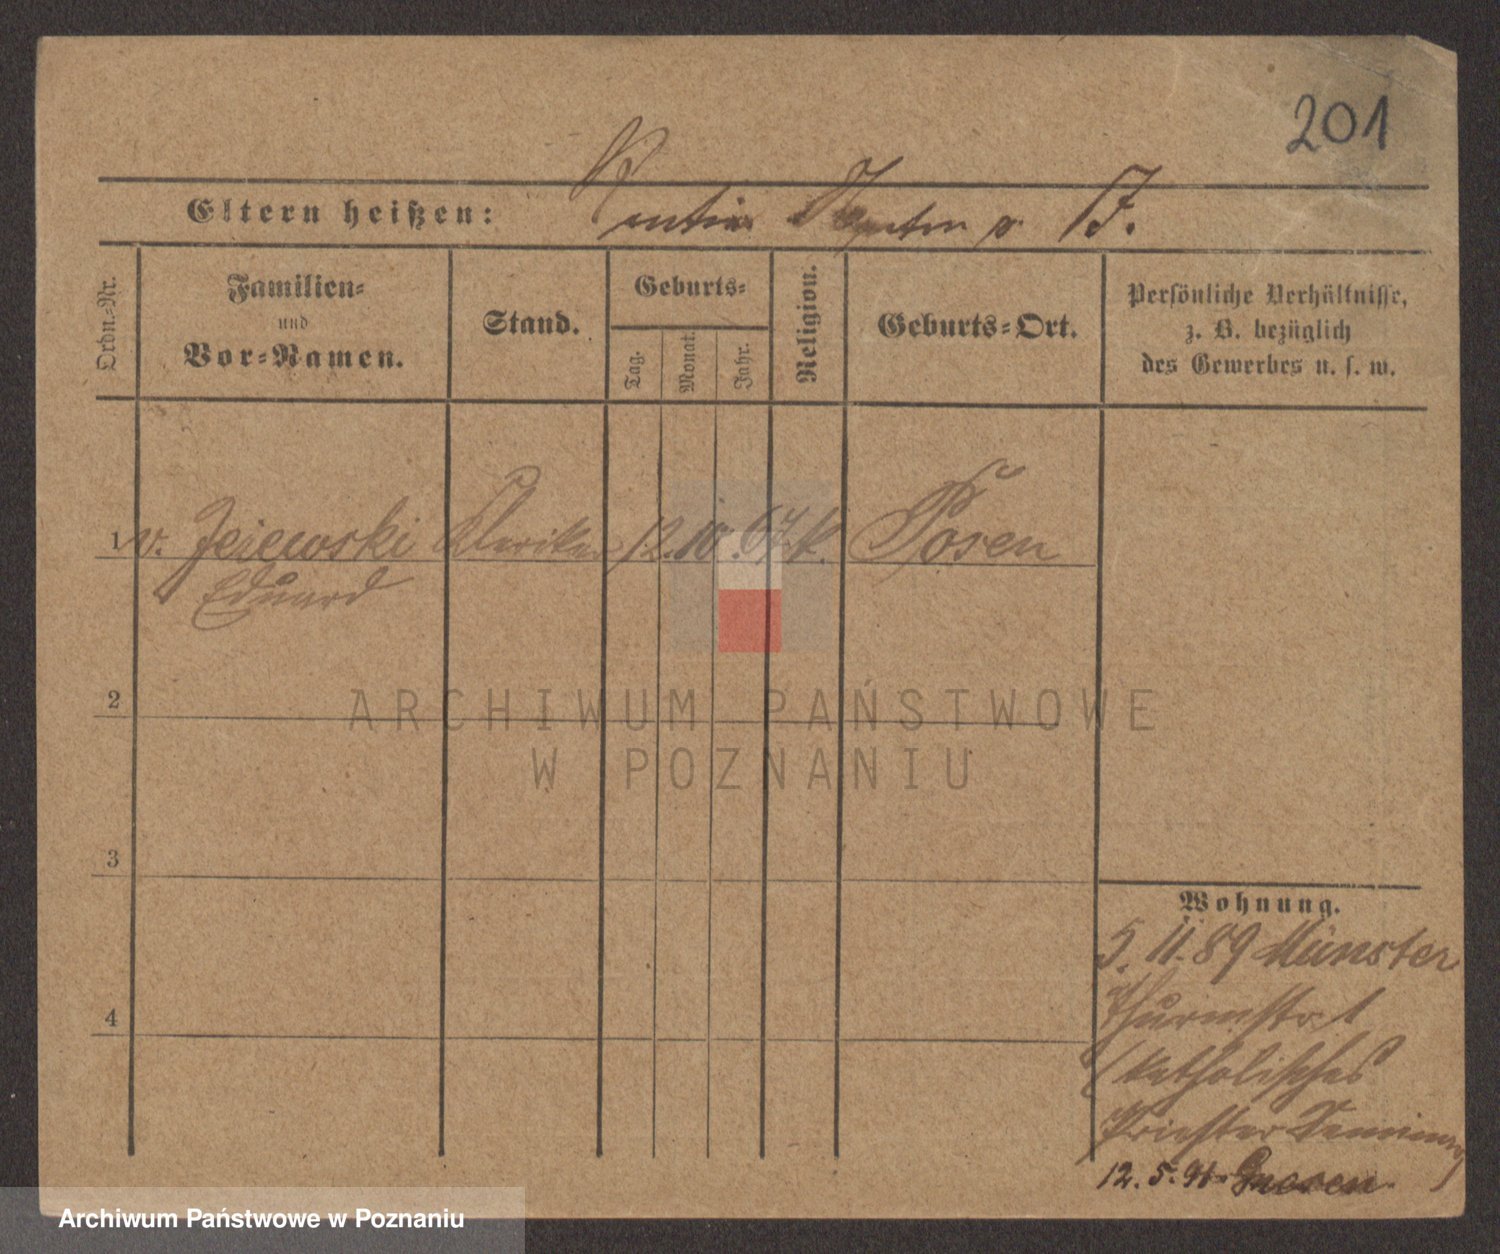 201
Eltern heißen: Rentier v. J.
Ordn.-Nr.
Familien-
und
Vor-Namen.
Stand.
Geburts-
Tag.
Monat.
Jahr.
Religion.
Geburts-Ort.
Persönliche Verhältnisse,
z. B. bezüglich
des Gewerbes u. s. w.
1 v. Jezewski Kleriker 12. 10. 67 k. Posen
Eduard
2
ARCHIWUM PAŃSTWOWE
W POZNANIU
3
4
Wohnung.
5. 11. 89 Münster
Thurmstr. 1
(Katholisches
Priester Seminar)
12. 5. 91 Gnesen
Archiwum Państwowe w Poznaniu